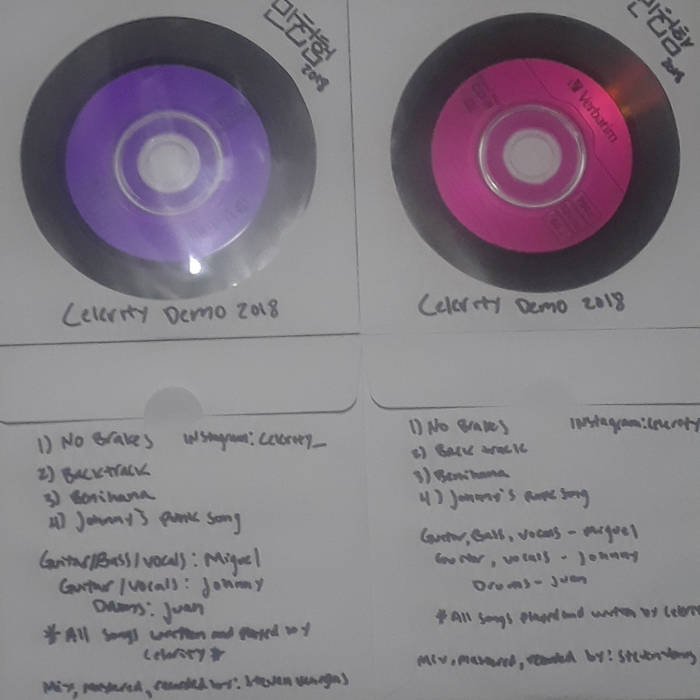 민첩함
2018
Celerity Demo 2018
1) No Brakes Instagram: Celerity_
2) Backtrack
3) Benihana
4) Johnny's Punk Song
Guitar/Bass/vocals: Miguel
Guitar/vocals: Johnny
Drums: Juan
*All songs written and played by
Celerity*
Mix, mastered, recorded by: Steven Vargas
민첩함
2018
Verbatim
Celerity Demo 2018
1) No Brakes Instagram: Celerity
2) Back track
3) Benihana
4) Johnny's Punk Song
Guitar, Bass, vocals - Miguel
Guitar, vocals - Johnny
Drums - Juan
*All songs played and written by
Mix, mastered, recorded by: Steven